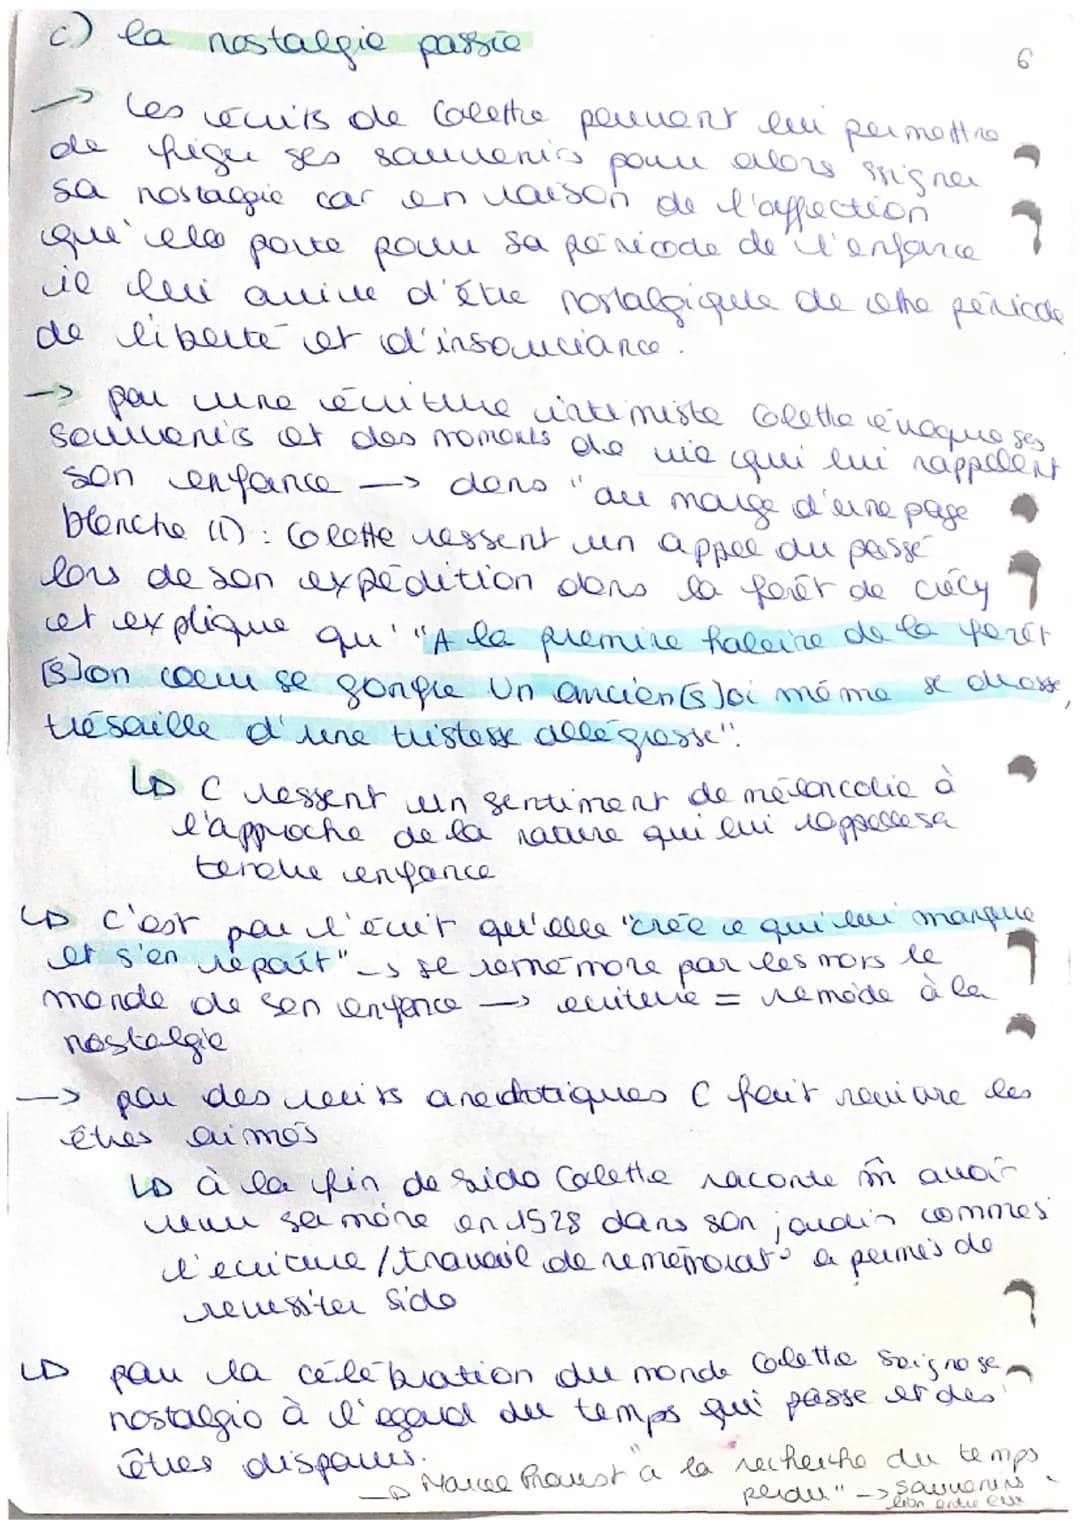 c) la nostalgie passée
6
→ Les écrits de Colette peuvent lui permettre
de figer ses souvenirs pour alors soigner
sa nostalgie car en raison de l'affection
qu'elle porte pour sa période de l'enfance
il lui arrive d'être nostalgique de cette période
de liberté et d'insouciance.
→ par une écriture intimiste Colette évoque ses
souvenirs et des moments de vie qui lui rappelent
son enfance → dans "au marge d'une page
blanche (1) : Colette ressent un appel du passé
lors de son expédition dans la forêt de crécy
et explique qu'"A la premire haleine de la forêt
[s]on coeur se gonfle Un ancien [s]oi même se dresse,
trésaille d'une tristesse allégresse".
↳ C ressent un sentiment de mélancolie à
l'approche de la nature qui lui rappelle sa
tendre enfance
↳ c'est par l'écrit qu'elle "crée ce qui lui manque
et s'en repaît" → se remémore par les mots le
monde de son enfance → ecriture = remède à la
nostalgie
→ par des récits anecdotiques C fait revivre les
êtres aimés
↳ à la fin de Sido Colette raconte m̂ avoir
revu sa mère en 1928 dans son jardin commes
l'ecriture / travail de remémorat° a permis de
ressusiter Sido
↳ par la célébration du monde Colette soigne sa
nostalgie à l'égard du temps qui passe et des
êtres disparus.
→ Marcel Proust "à la recherche du temps
perdu" → souvenirs
lien entre eux